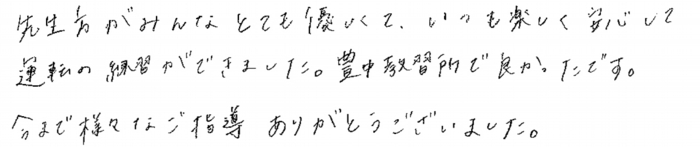 先生方がみんなとても優しくて、いつも楽しく安心して
運転の練習ができました。豊中教習所で良かったです。
今まで様々なご指導ありがとうございました。